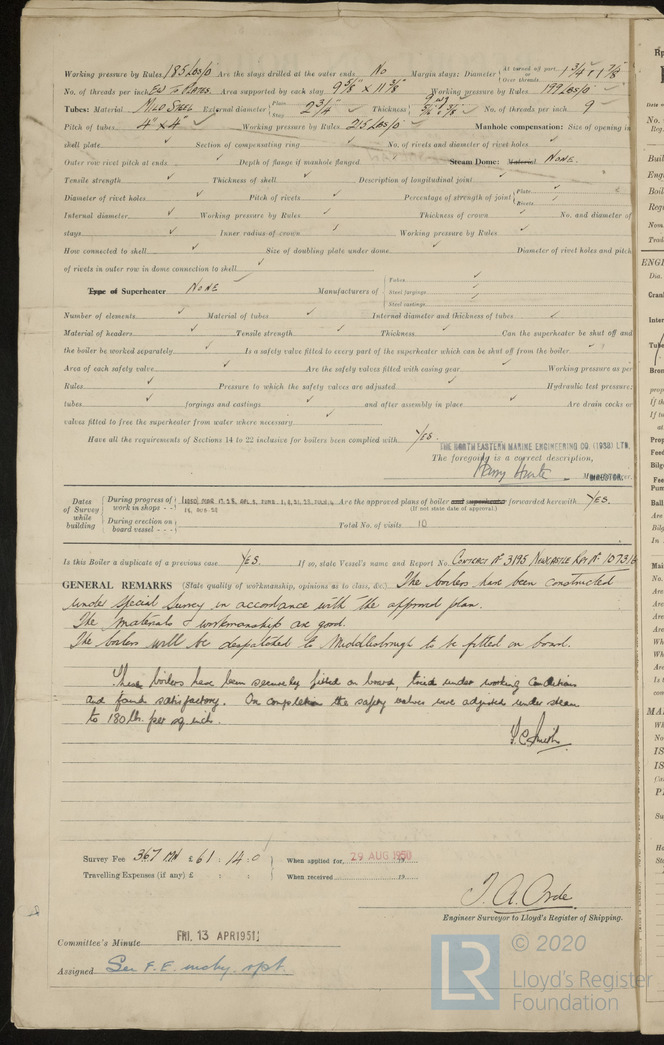 Working pressure by Rules 185 Lbs/□" Are the stays drilled at the outer ends No Margin stays: Diameter { At turned off part, or Over threads 1 3/4" & 1 7/8"
No. of threads per inch Area supported by each stay 9 5/8" x 11 3/8" Working pressure by Rules 199 Lbs/□"
Tubes: Material Mild Steel External diameter { Plain Stay 2 3/4" Thickness { No. of threads per inch 9
Pitch of tubes 4" x 4" Working pressure by Rules 215 Lbs/□" Manhole compensation: Size of opening in
shell plate Section of compensating ring No. of rivets and diameter of rivet holes
Outer row rivet pitch at ends Depth of flange if manhole flanged Steam Dome: Material None.
Tensile strength Thickness of shell Description of longitudinal joint
Diameter of rivet holes Pitch of rivets Percentage of strength of joint { Plate Rivets
Internal diameter Working pressure by Rules Thickness of crown No. and diameter of
stays Inner radius of crown Working pressure by Rules
How connected to shell Size of doubling plate under dome Diameter of rivet holes and pitch
of rivets in outer row in dome connection to shell
Type of Superheater None Manufacturers of { Tubes Steel forgings Steel castings
Number of elements Material of tubes Internal diameter and thickness of tubes
Material of headers Tensile strength Thickness Can the superheater be shut off and
the boiler be worked separately Is a safety valve fitted to every part of the superheater which can be shut off from the boiler
Area of each safety valve Are the safety valves fitted with easing gear Working pressure as per
Rules Pressure to which the safety valves are adjusted Hydraulic test pressure:
tubes forgings and castings and after assembly in place Are drain cocks or
valves fitted to free the superheater from water where necessary
Have all the requirements of Sections 14 to 22 inclusive for boilers been complied with Yes.
THE NORTH EASTERN MARINE ENGINEERING CO. (1938) LTD.
The foregoing is a correct description,
Harry Hunter DIRECTOR.
Dates of Survey while building { During progress of work in shops - - During erection on board vessel - - -
Are the approved plans of boiler and superheater forwarded herewith Yes.
(If not state date of approval.)
Total No. of visits 18
Is this Boiler a duplicate of a previous case Yes. If so, state Vessel's name and Report No. Contract No 3195 Newcastle Rpt No 107316
GENERAL REMARKS (State quality of workmanship, opinions as to class, &c.) The boilers have been constructed
under Special Survey in accordance with the approved plan.
The materials & workmanship are good.
The boilers will be despatched to Middlesbrough to be fitted on board.
These boilers have been securely fitted on board, tried under working conditions
and found satisfactory. On completion the safety valves were adjusted under steam
to 180 lb. per sq inch.
Survey Fee £ 61 : 14 : 0 When applied for, 29 AUG 1950
Travelling Expenses (if any) £ : : When received 19
T. A. Orde
Engineer Surveyor to Lloyd's Register of Shipping.
Committee's Minute FRI. 13 APR 1951
Assigned See F.E. mchy. rpt.
LR
© 2020
Lloyd's Register
Foundation